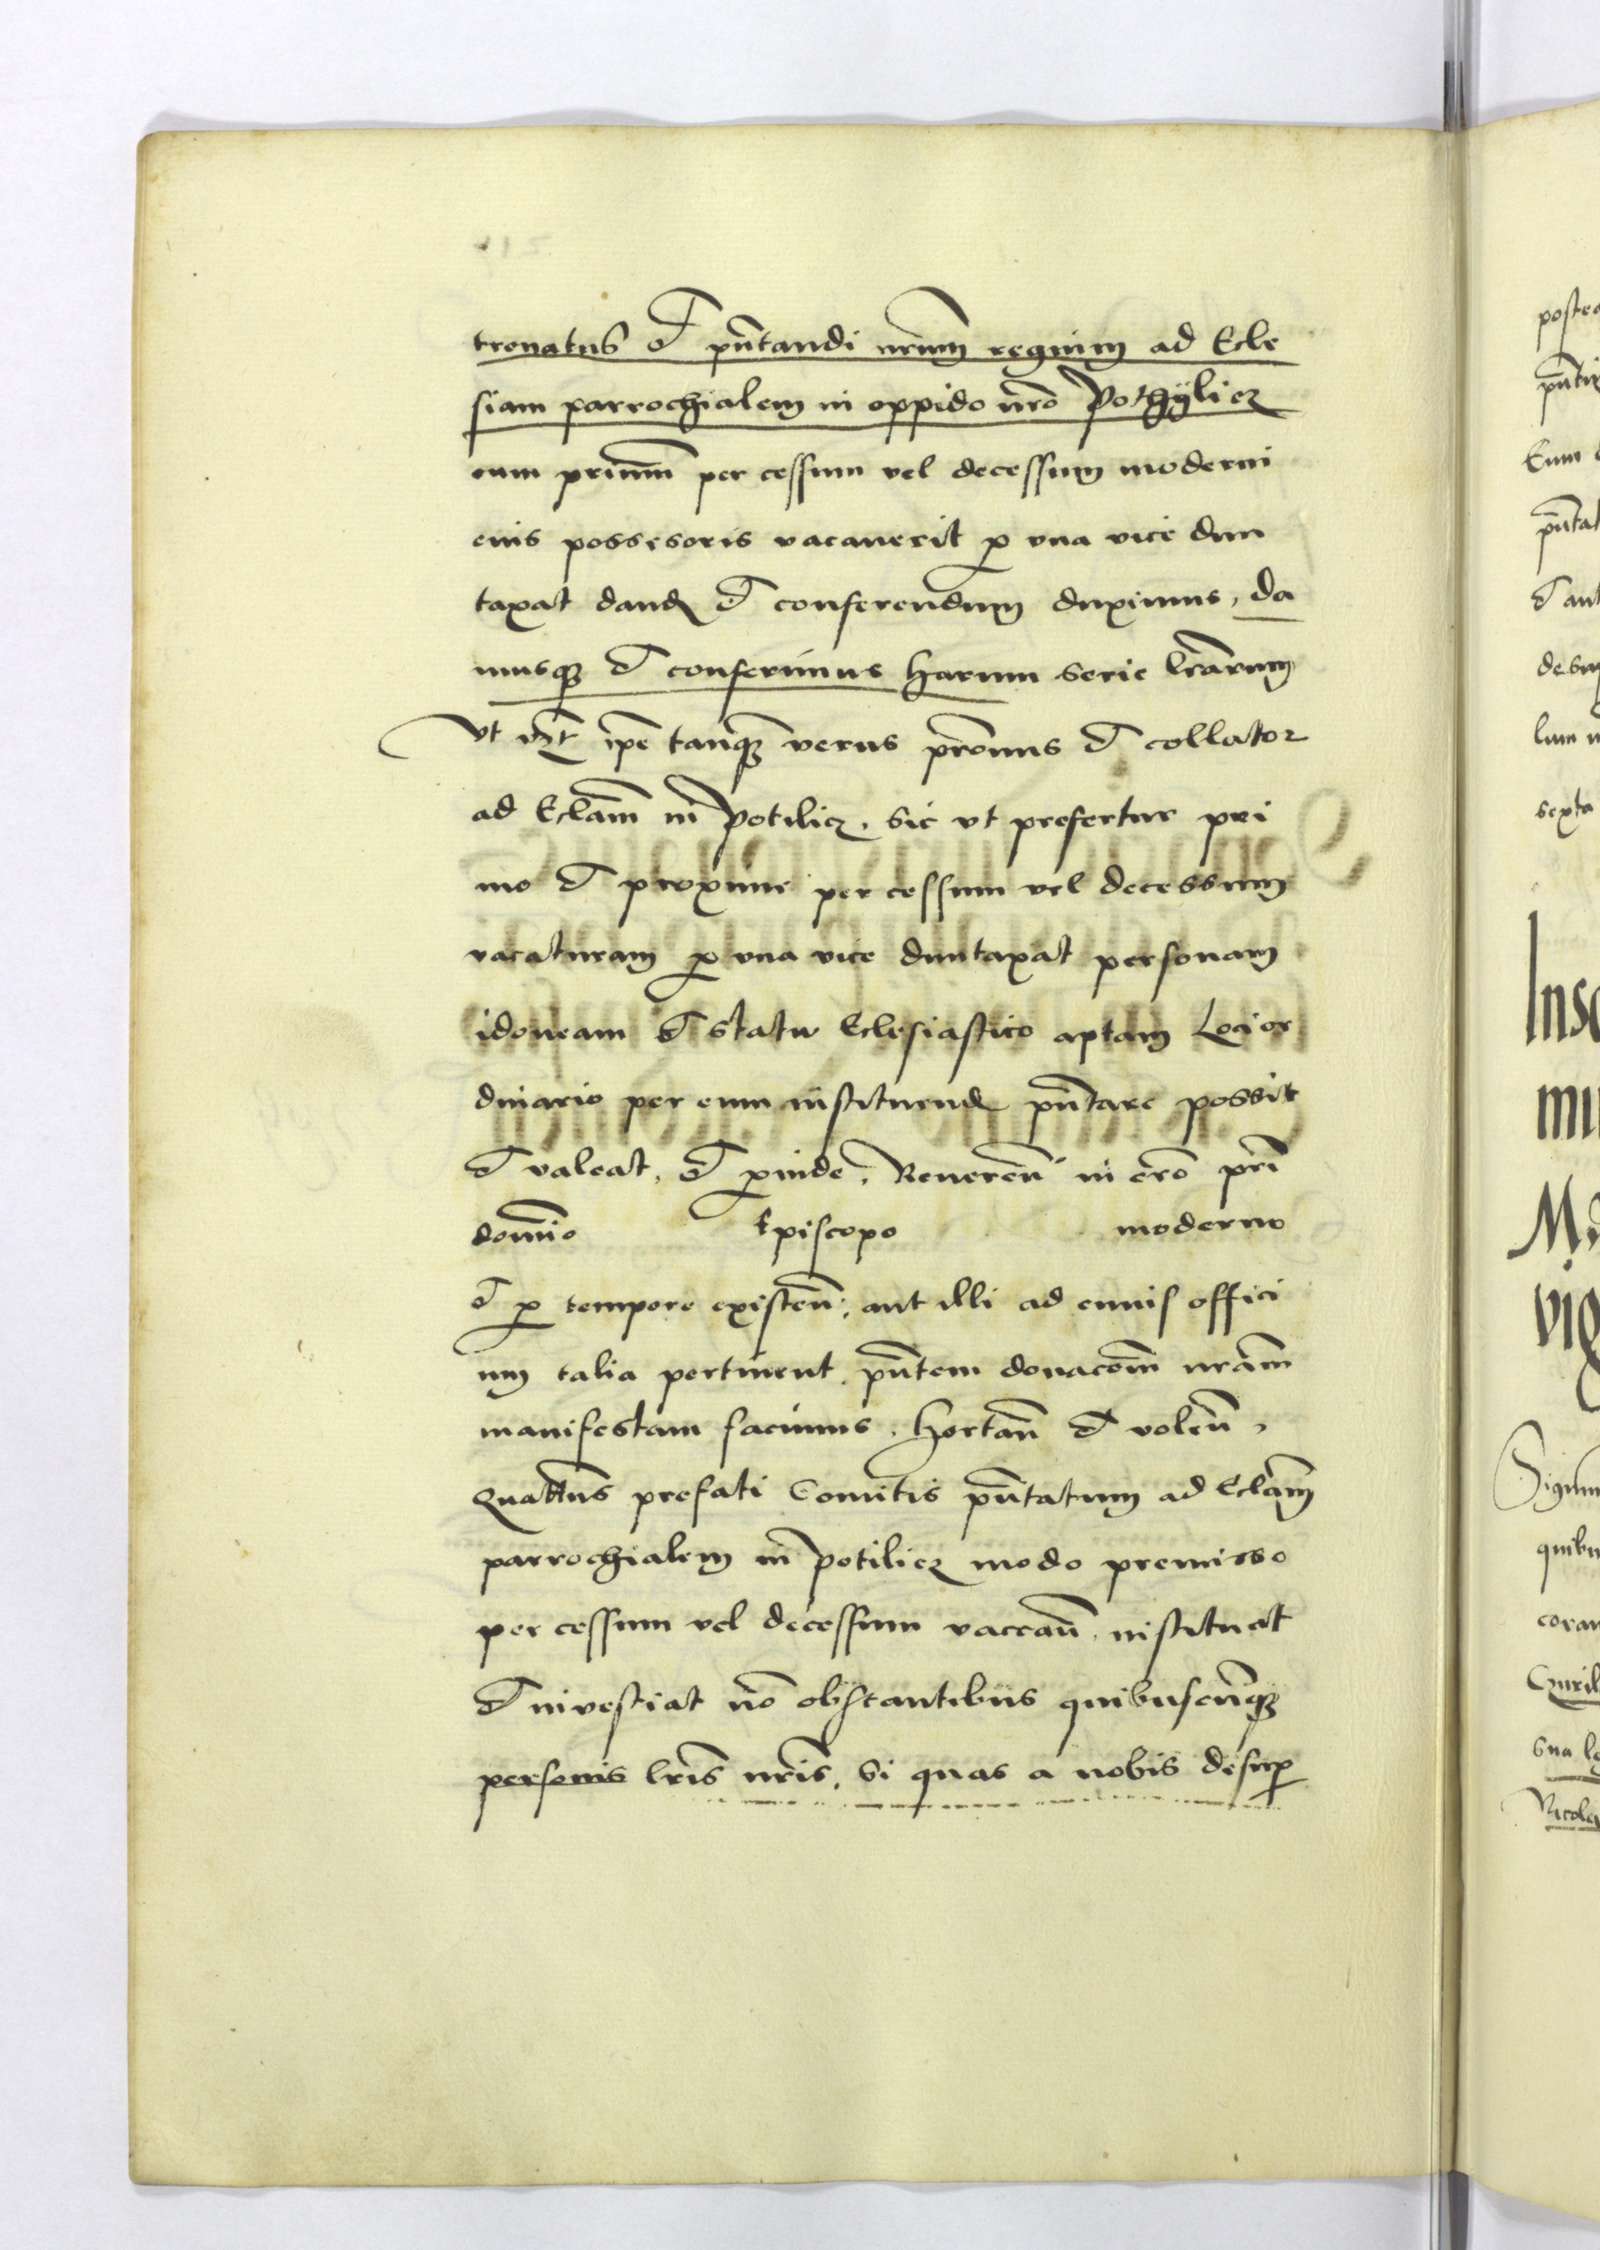 tronatus et pn̄tandi nr̄um regium ad Ecle
siam parrochialem in oppido nr̄o Pothÿlicz
cum primū per cessum vel decessum moderni
eius possesoris vacauerit ꝑ vna vice dun
taxat dand et conferendum duximus, da
musqȝ et conferimus harum serie lr̄arum
Vt ipē tanqȝ verus pr̄onus et collator
ad Ecl̄am in Potilicz, sic vt prefertur pri
mo et proxime per cessum vel decessum
vacaturam ꝑ vna vice duntaxat personam
idoneam et statu Eclesiastico aptam Loci or
dinario per eum instituend pn̄tare possit
et valeat, et ꝑinde, Reueren̄ in cr̄o pr̄i
domīo Episcopo moderno
et ꝑ tempore existen̄, aut illi ad cuius offici
um talia pertinent, pn̄tem donacōm nr̄am
manifestam facimus, hortan̄ et volen̄,
Quattus prefati Comitis pn̄tatum ad Ecl̄am
parrochialem in Potilicz modo premisso
per cessum vel decessum vacean̄, instituat
et inuestiat nō obstantibus quibuscūqȝ
personis lr̄is nr̄is, si quas a nobis desuꝑ